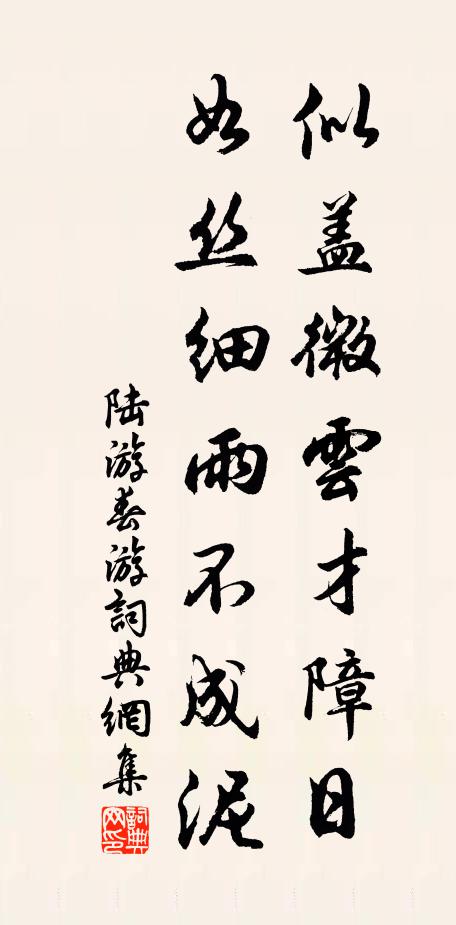 似盖微雲才障日
如丝细雨不成泥
陆游春游詞典網集
詞典网印